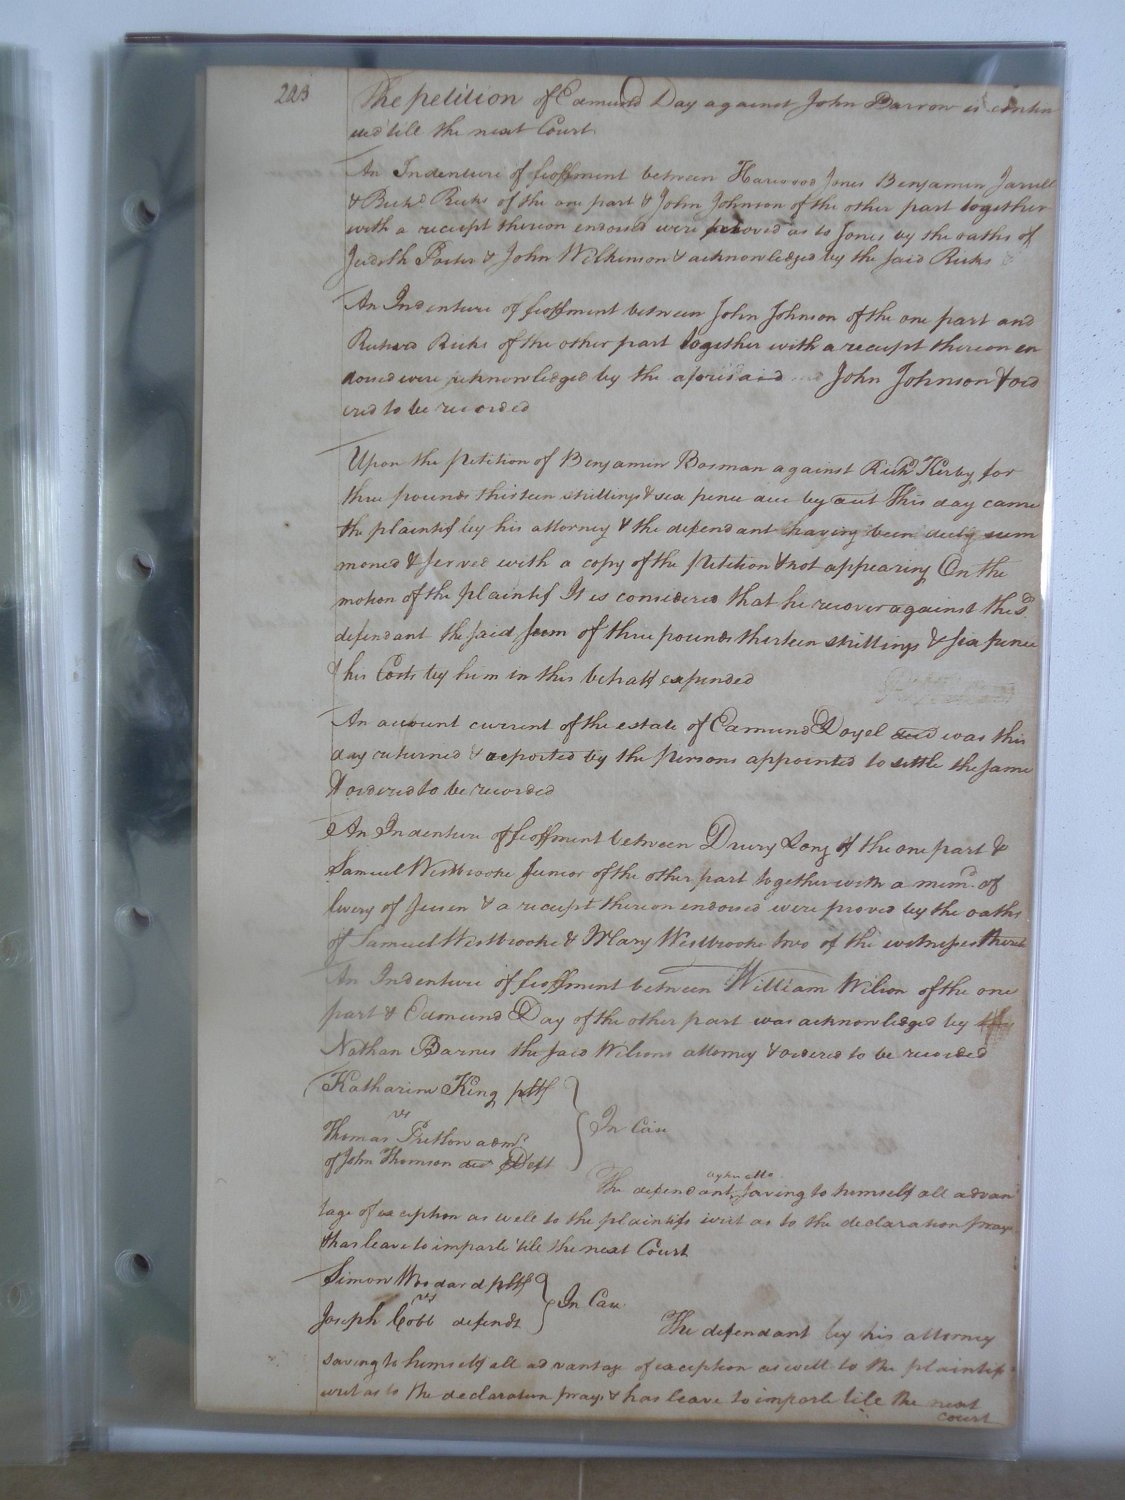 223
The petition of Edmund Day against John Barrow is contin
ued till the next Court
An Indenture of feoffment between Harwood Jones Benjamin Jarrell
& Richd Ricks of the one part & John Johnson of the other part together
with a receipt thereon endorsed were proved as to Jones by the oaths of
Judith Porter & John Wilkinson & acknowledged by the said Ricks
An Indenture of feoffment between John Johnson of the one part and
Richard Ricks of the other part together with a receipt thereon en
dorsed were acknowledged by the aforesaid John Johnson & ord
ered to be recorded
Upon the petition of Benjamin Bosman against Richd Kerby for
three pounds thirteen shillings & six pence due by acct This day came
the plaintif by his attorney & the defendant having been duly sum
moned & served with a copy of the petition & not appearing On the
motion of the plaintif It is considered that he recover against the sd
defendant the said sum of three pounds thirteen shillings & six pence
& his Costs by him in this behalf expended
An account current of the estate of Edmund Doyel decd was this
day returned & reported by the persons appointed to settle the same
& ordered to be recorded
An Indenture of feoffment between Drury Long of the one part &
Samuel Westbrooke Junior of the other part together with a memd. of
livery of seisen & a receipt thereon endorsed were proved by the oaths
of Samuel Westbrooke & Mary Westbrooke two of the witnesses thereto
An Indenture of feoffment between William Wilson of the one
part & Edmund Day of the other part was acknowledged by
Nathan Barnes the said Wilsons attorney & ordered to be recorded
Katharine King pltf
vs
In Case
Thomas Pretlow admr.
of John Thomson decd Deft
The defendant by his atto saving to himself all advan
tage of exception as well to the plaintifs writ as to the declaration prays
& has leave to imparle till the next Court
Simon Woodard pltf
vs
In Case
Joseph Cobb defendt
The defendant by his attorney
saving to himself all advantage of exception as well to the plaintifs
writ as to the declaration prays & has leave to imparle till the next
Court